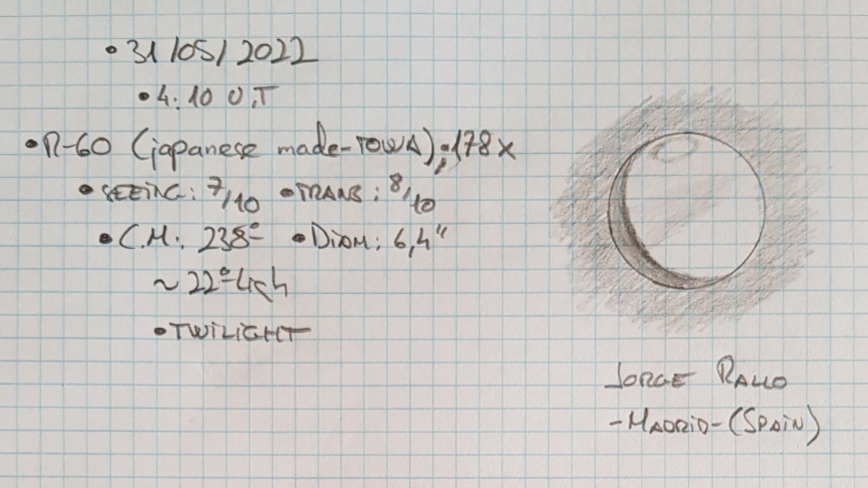 • 31/05/2022
• 4:10 U.T
• R-60 (japanese made-TOWA); 178x
• SEEING: 7/10 • TRANS: 8/10
• C.M: 238º • DIAM: 6,4"
~ 22º high
• TWILIGHT
JORGE RALLO
-MADRID-(SPAIN)